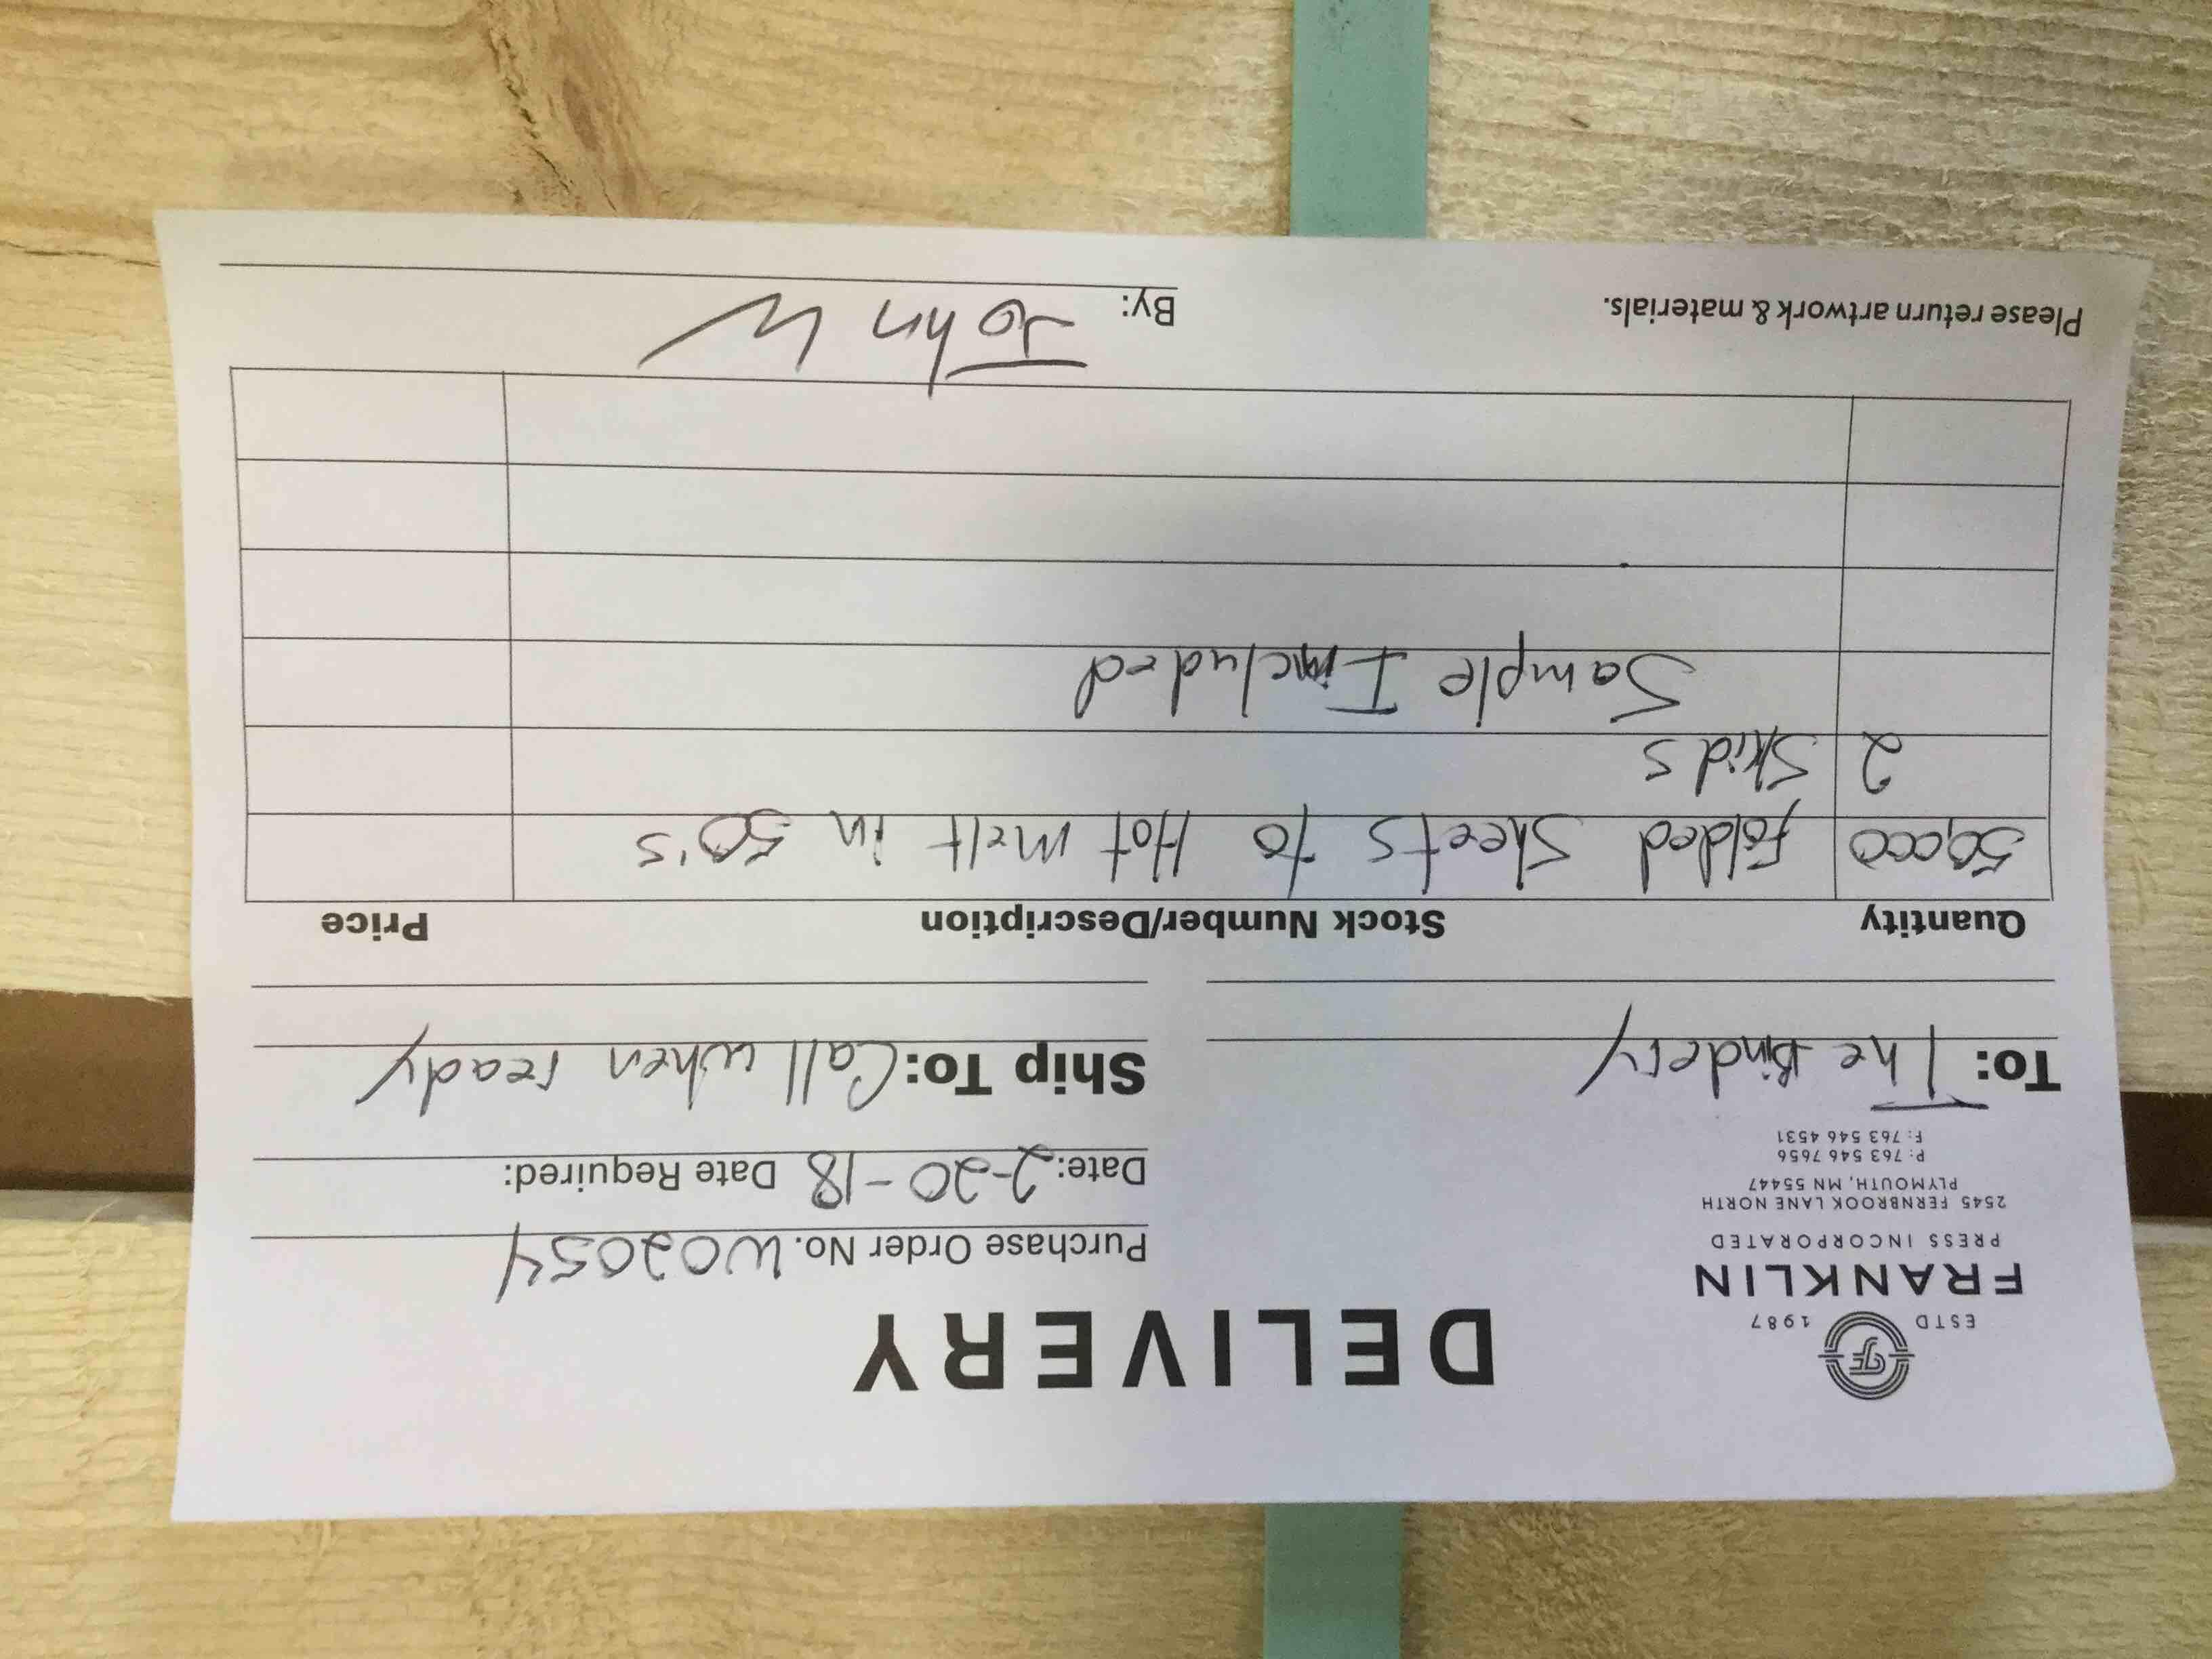 ESTD 1987
FRANKLIN
PRESS INCORPORATED
2545 FERNBROOK LANE NORTH
PLYMOUTH, MN 55447
P: 763 546 7656
F: 763 546 4531
DELIVERY
Purchase Order No. W02054
Date: 2-20-18 Date Required:
To: The Bindery
Ship To: Call when ready
Quantity Stock Number/Description Price
50,000 Folded Sheets to Hot melt in 50's
2 Skids
Sample Included
Please return artwork & materials.
By: John W